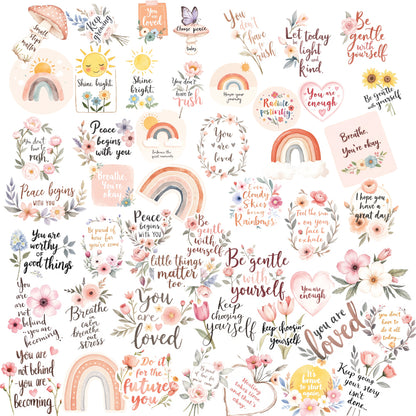 Small
steps
matter
Keep
growing
You
are
loved
choose peace.
You
don't
have to
rush
Let today
be
light
and
kind.
Be
gentle
with
yourself
Shine bright.
Shine
bright.
You
don't have
to
rush
You are
enough
Radiate
positivity.
Be gentle
with yourself
You
don't have
to
rush.
Peace
begins
with you
Embrace the
You
are
loved
Breathe.
You're
okay.
Breathe.
You're
okay.
Peace begins
with
you
Even
Cloudy
Skies
bring
Rainbows
Feel the sun
on your
face
& exhale
I hope you
have a
great day
You are
worthy
of
good things
Be proud of
how far
you've
come
Peace
begins
with you
Be
gentle
with
yourself
Little things
matter
too.
Be gentle
with
yourself
You are
enough
You
are
not
behind
you are
becoming.
Breathe
in
calm,
breathe
out
stress
You
are
loved
Keep
choosing
yourself
keep choosing
yourself
you are
loved
You don't
have to
do it all
today
You are
not behind
you are
becoming.
Do it
for the
future
you
It's
never to
start
again
Keep going
your story
isn't
done.